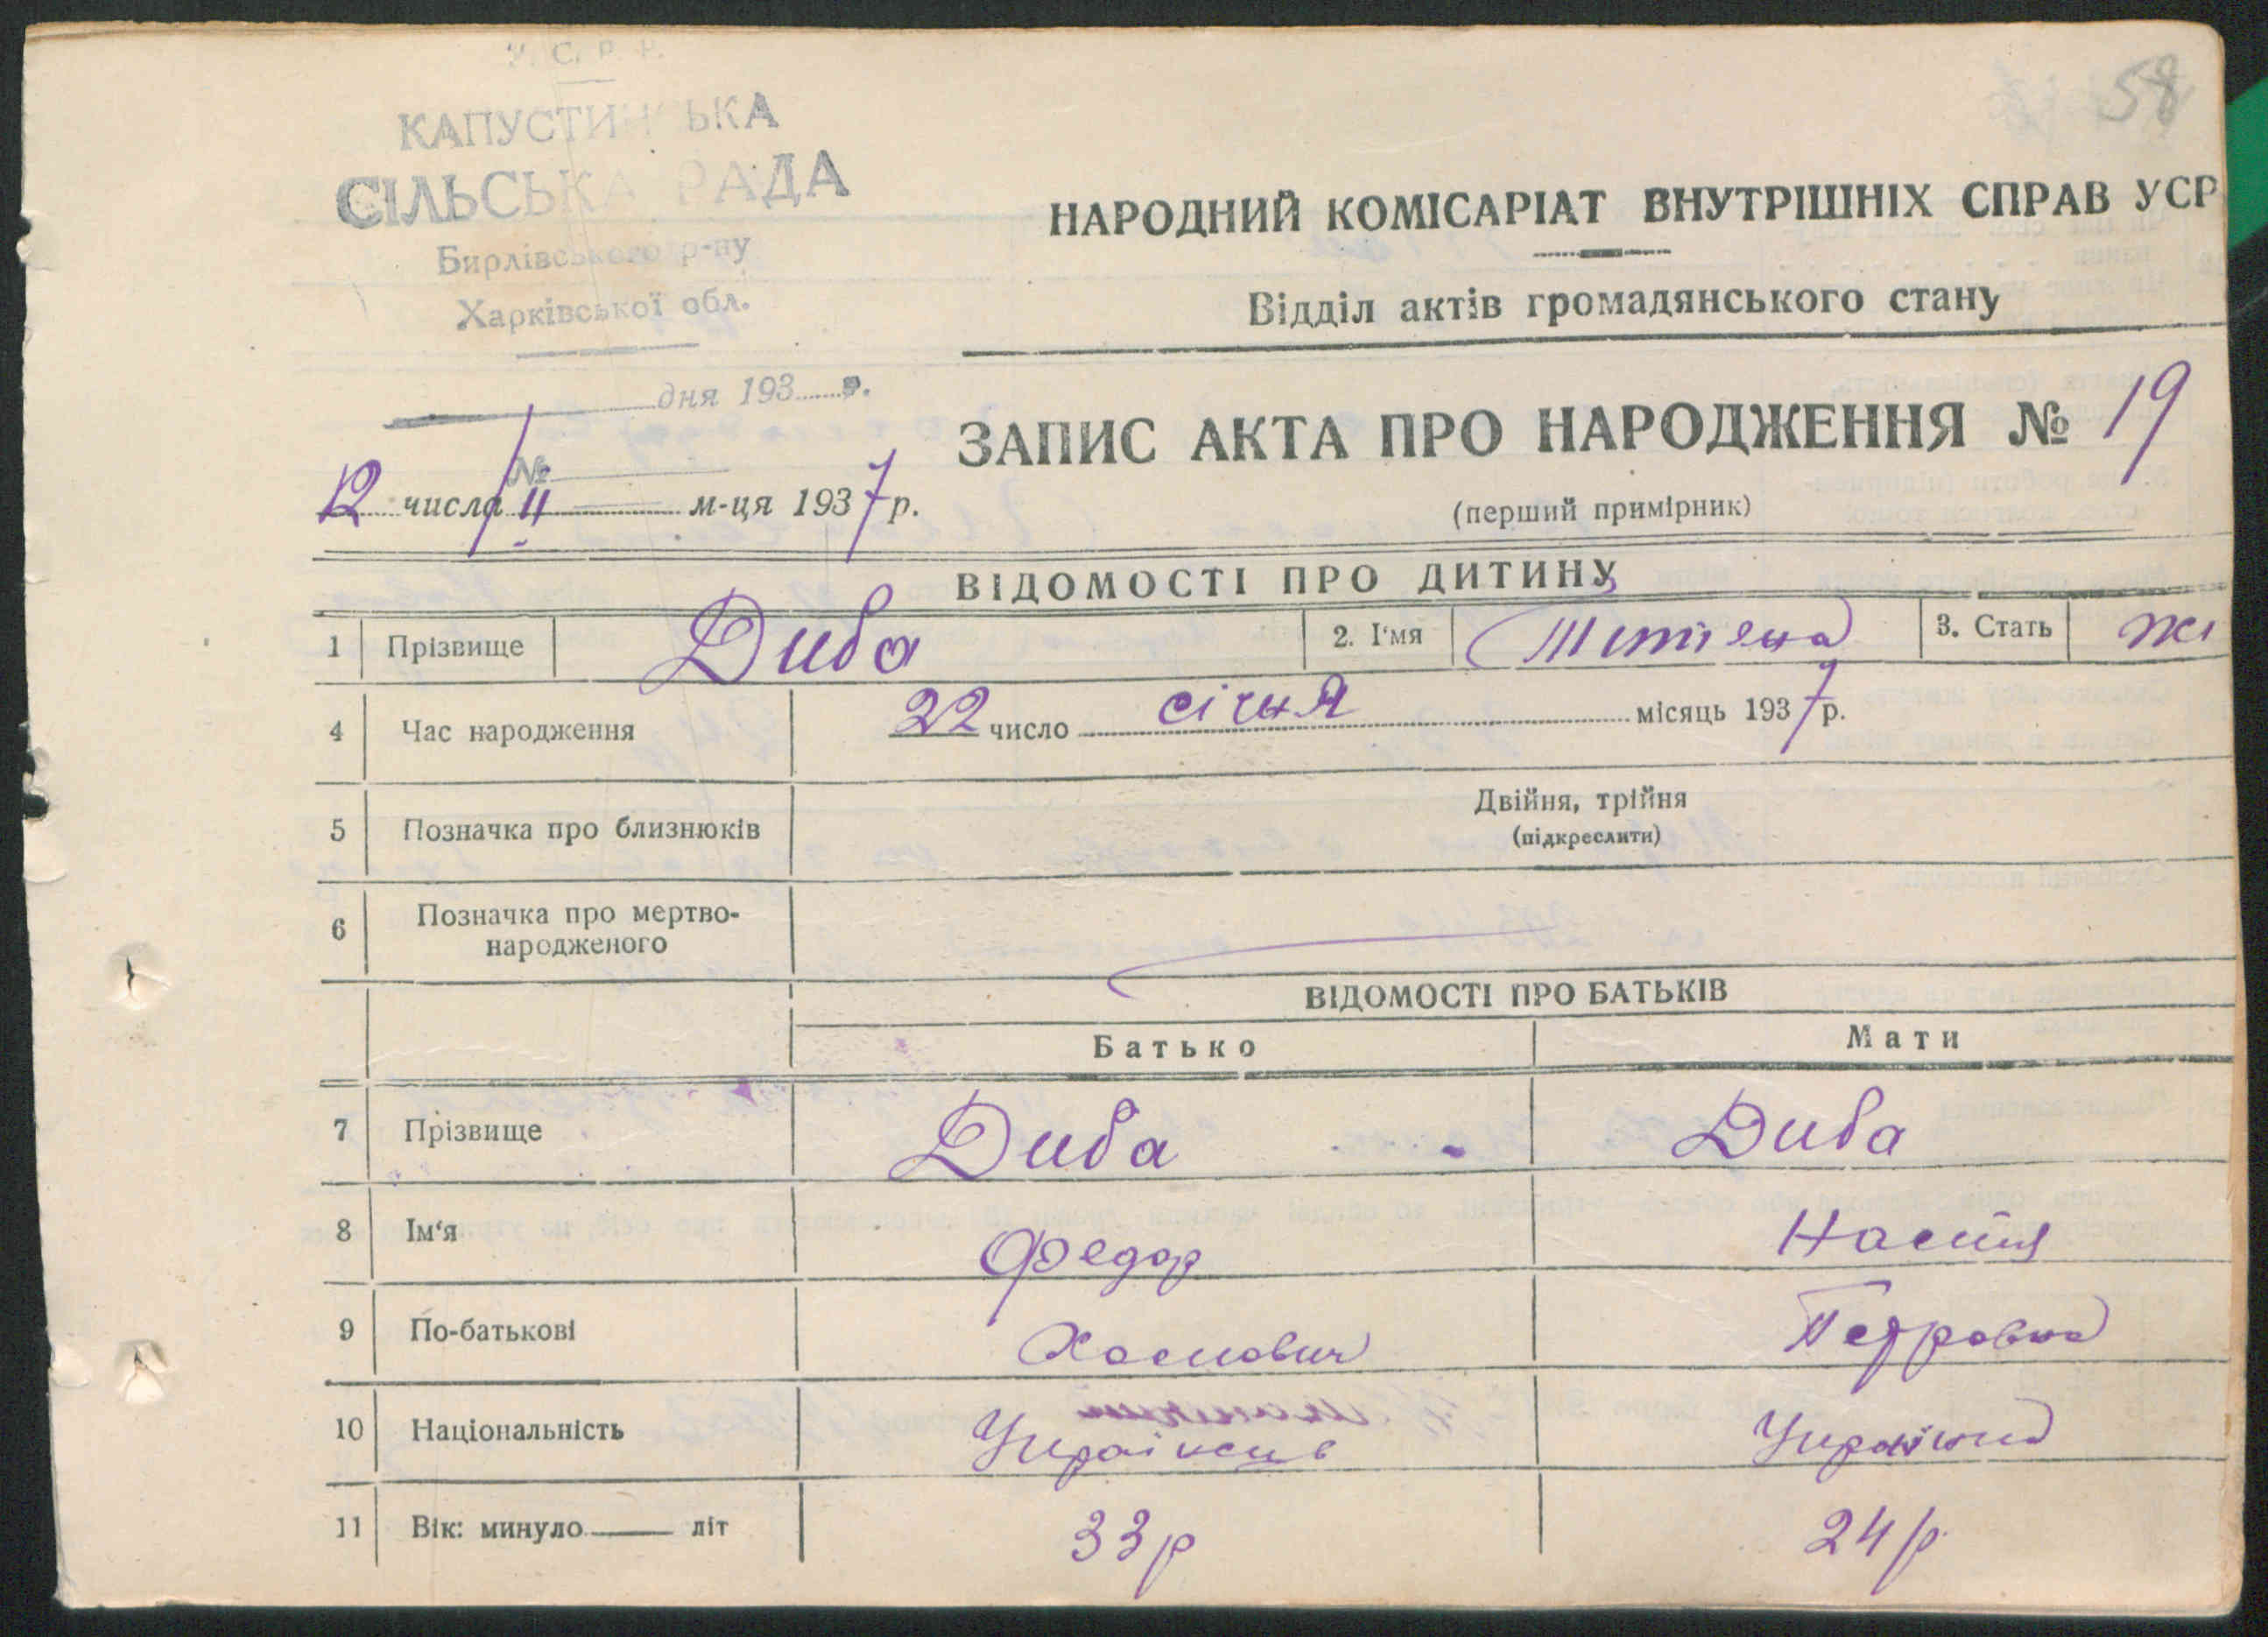 У. С. Р. Р.
58
КАПУСТИНСЬКА
СІЛЬСЬКА РАДА
Бирлівського р-ну
Харківської обл.
НАРОДНИЙ КОМІСАРІАТ ВНУТРІШНІХ СПРАВ УСР
Відділ актів громадянського стану
дня 193 р.
№
ЗАПИС АКТА ПРО НАРОДЖЕННЯ № 19
12 числа / II м-ця 1937 р.
(перший примірник)
ВІДОМОСТІ ПРО ДИТИНУ
1 Прізвище Диба 2. І'мя Титяна 3. Стать жі
4 Час народження 22 число січня місяць 1937 р.
5 Позначка про близнюків Двійня, трійня
(підкреслити)
6 Позначка про мертво-
народженого
ВІДОМОСТІ ПРО БАТЬКІВ
Батько Мати
7 Прізвище Диба Диба
8 Ім'я Федор Настя
9 По-батькові Петровна
10 Національність Українець Українка
11 Вік: минуло літ 33 р 24 р